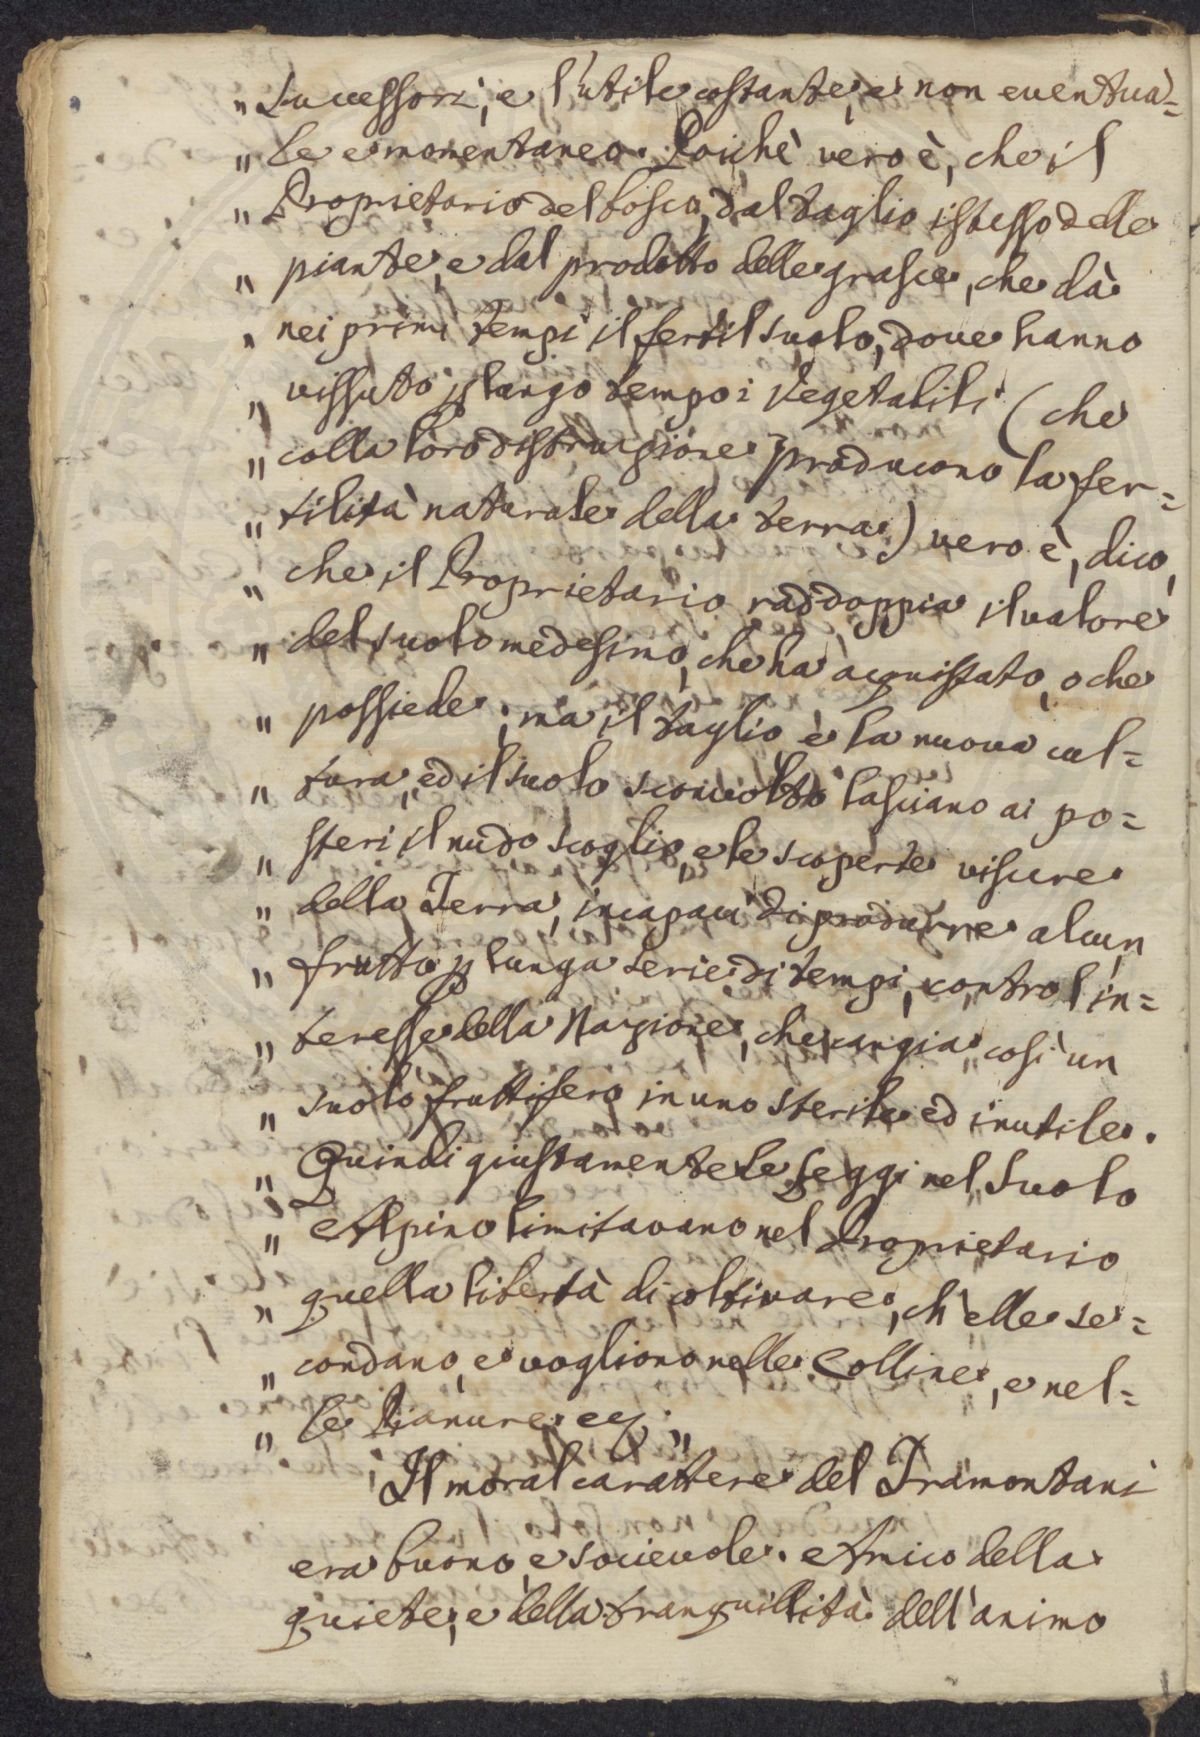 " Successori, e l'utile costante, e non eventua=
" le e momentaneo. Poichè vero è, che il
" Proprietario del bosco, dal taglio istesso delle
" piante, e dal prodotto delle grasce, che dà
" nei primi tempi il fertil suolo, dove hanno
" vissuto p lungo tempo i Vegetabili (che
" colla loro distruzione producono la fer=
" tilità naturale della terra) vero è, dico,
" che il Proprietario raddoppia il valore
" del suolo medesimo, che ha acquistato, o che
" possiede; ma il taglio, e la nuova cul=
" tura, ed il suolo sconvolto lasciano ai po=
" steri il nudo scoglio, e le scoperte viscere
" della Terra, incapaci di produrre alcun
" frutto p lunga serie di tempi, contro l'in=
" teresse della Nazione, che cangia così un
" suolo fruttifero in uno sterile ed inutile.
" Quindi giustamente le Leggi nel Suolo
" Alpino limitavano nel Proprietario
" quella libertà di coltivare, ch'elle se=
" condano, e vogliono nelle Colline, e nel=
" le Pianure. "
Il moral carattere del Tramontani
era buono, e socievole. Amico della
quiete, e della tranquillità dell'animo